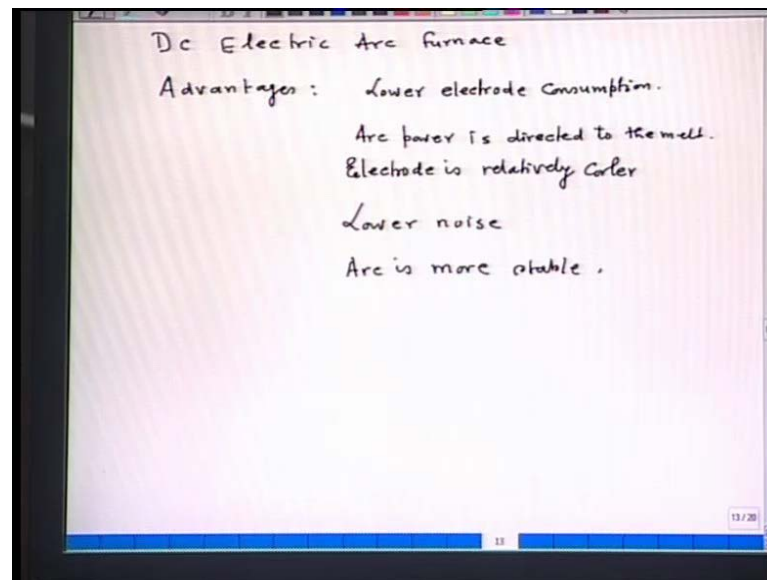 Dc Electric Arc furnace
Advantages : Lower electrode Consumption.
Arc power is directed to the melt.
Electrode is relatively Cooler
Lower noise
Arc is more stable .
13 / 20
13